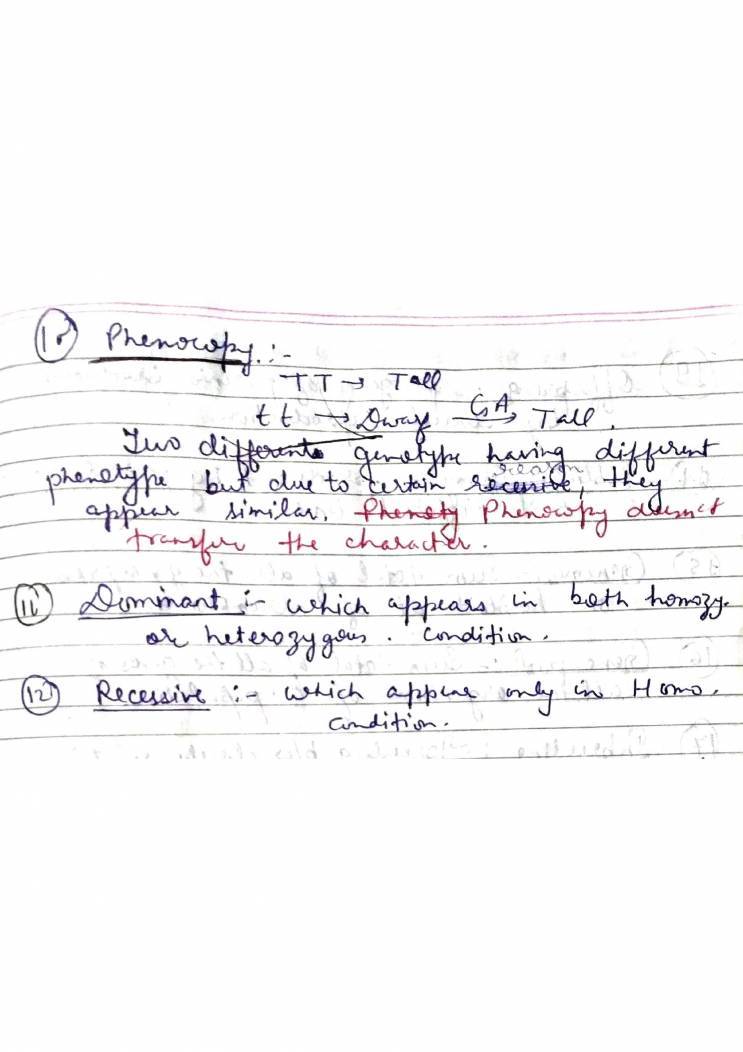 10 Phenocopy :-
TT → Tall
tt → Dwarf GA→ Tall.
Two different genotype having different
phenotype but due to certain reason, they
appear similar. Phenocopy doesn't
transfer the character.
11 Dominant :- which appears in both homozy.
or heterozygous. condition.
12 Recessive :- which appear only in Homo.
condition.